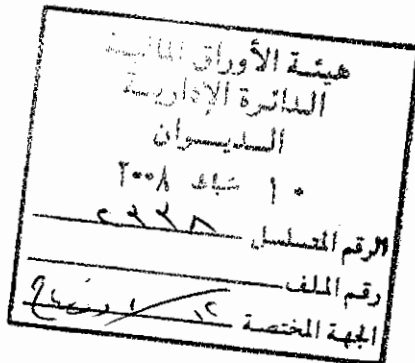 هيئة الأوراق المالية
الدائرة الإدارية
الديوان
١٠ شباط ٢٠٠٨
الرقم المتسلسل
رقم الملف
الجهة المختصة